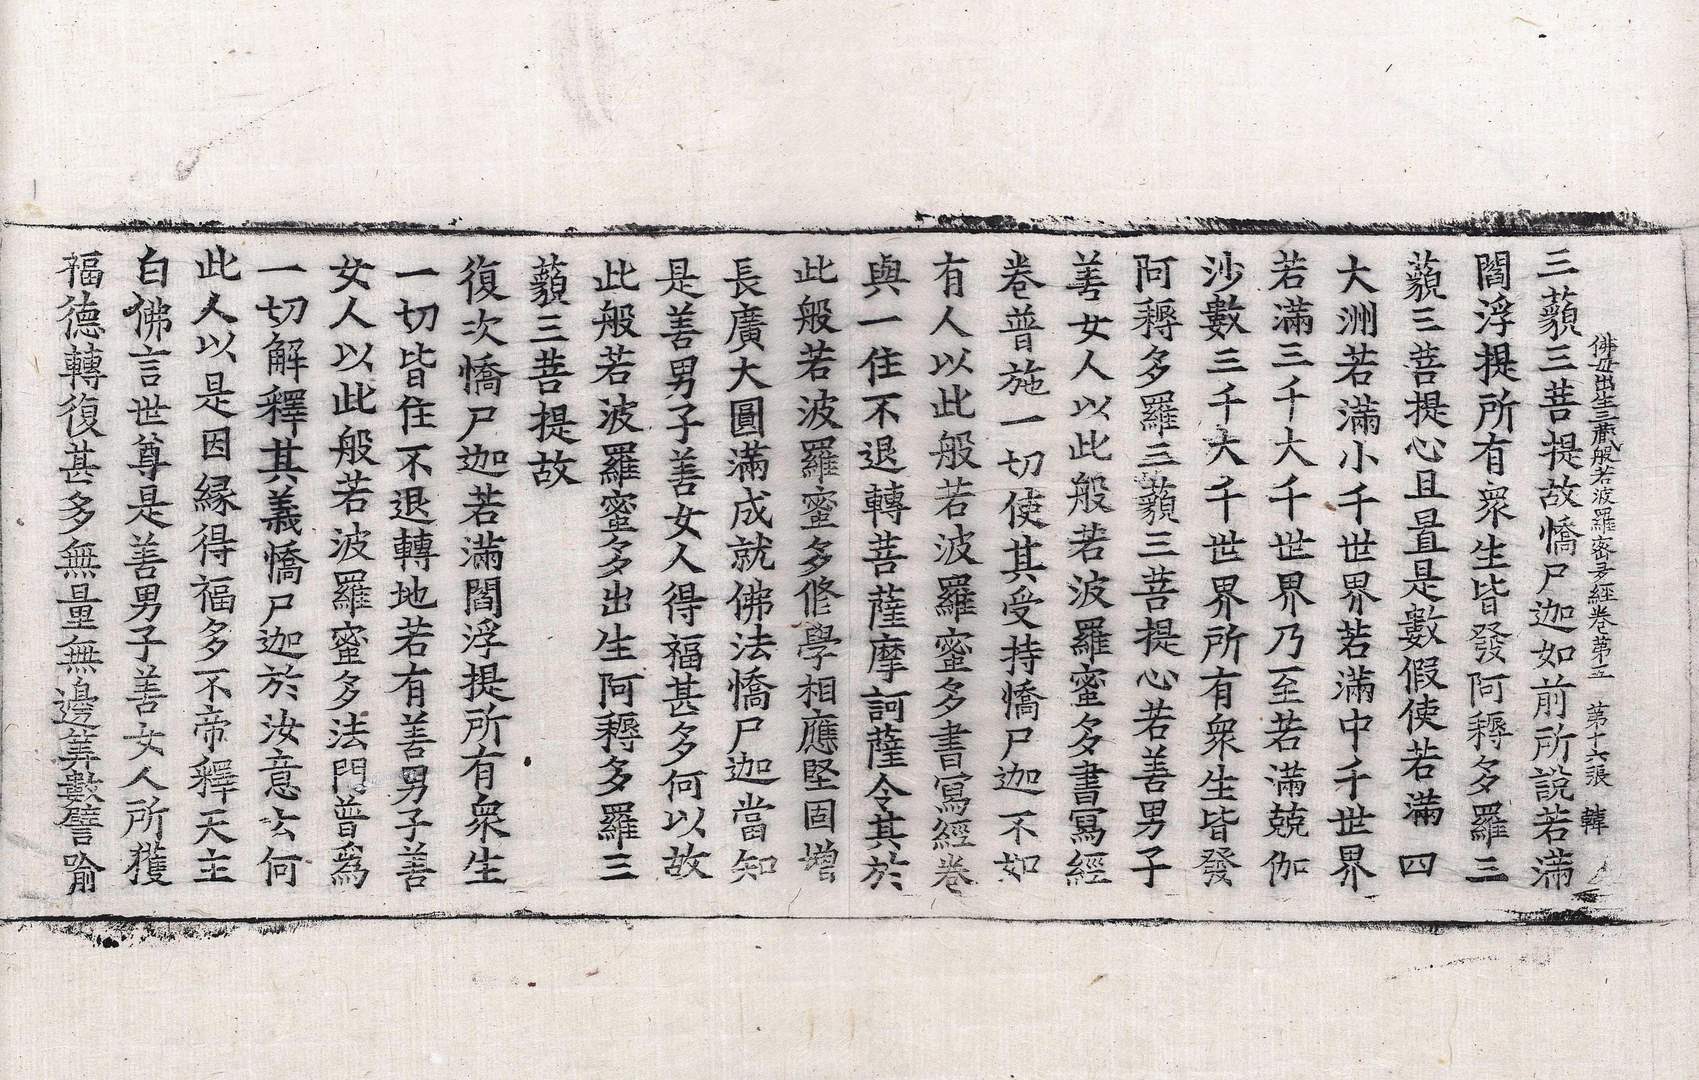 佛母出生三藏般若波羅蜜多經卷第五　第十六張　韓
三藐三菩提故憍尸迦如前所說若滿
閻浮提所有衆生皆發阿耨多羅三
藐三菩提心且置是數假使若滿四
大洲若滿小千世界若滿中千世界
若滿三千大千世界乃至若滿兢伽
沙數三千大千世界所有衆生皆發
阿耨多羅三藐三菩提心若善男子
善女人以此般若波羅蜜多書寫經
卷普施一切使其受持憍尸迦不如
有人以此般若波羅蜜多書寫經卷
與一住不退轉菩薩摩訶薩令其於
此般若波羅蜜多修學相應堅固增
長廣大圓滿成就佛法憍尸迦當知
是善男子善女人得福甚多何以故
此般若波羅蜜多出生阿耨多羅三
藐三菩提故
復次憍尸迦若滿閻浮提所有衆生
一切皆住不退轉地若有善男子善
女人以此般若波羅蜜多法門普爲
一切解釋其義憍尸迦於汝意云何
此人以是因緣得福多不帝釋天主
白佛言世尊是善男子善女人所獲
福德轉復甚多無量無邊筭數譬喻